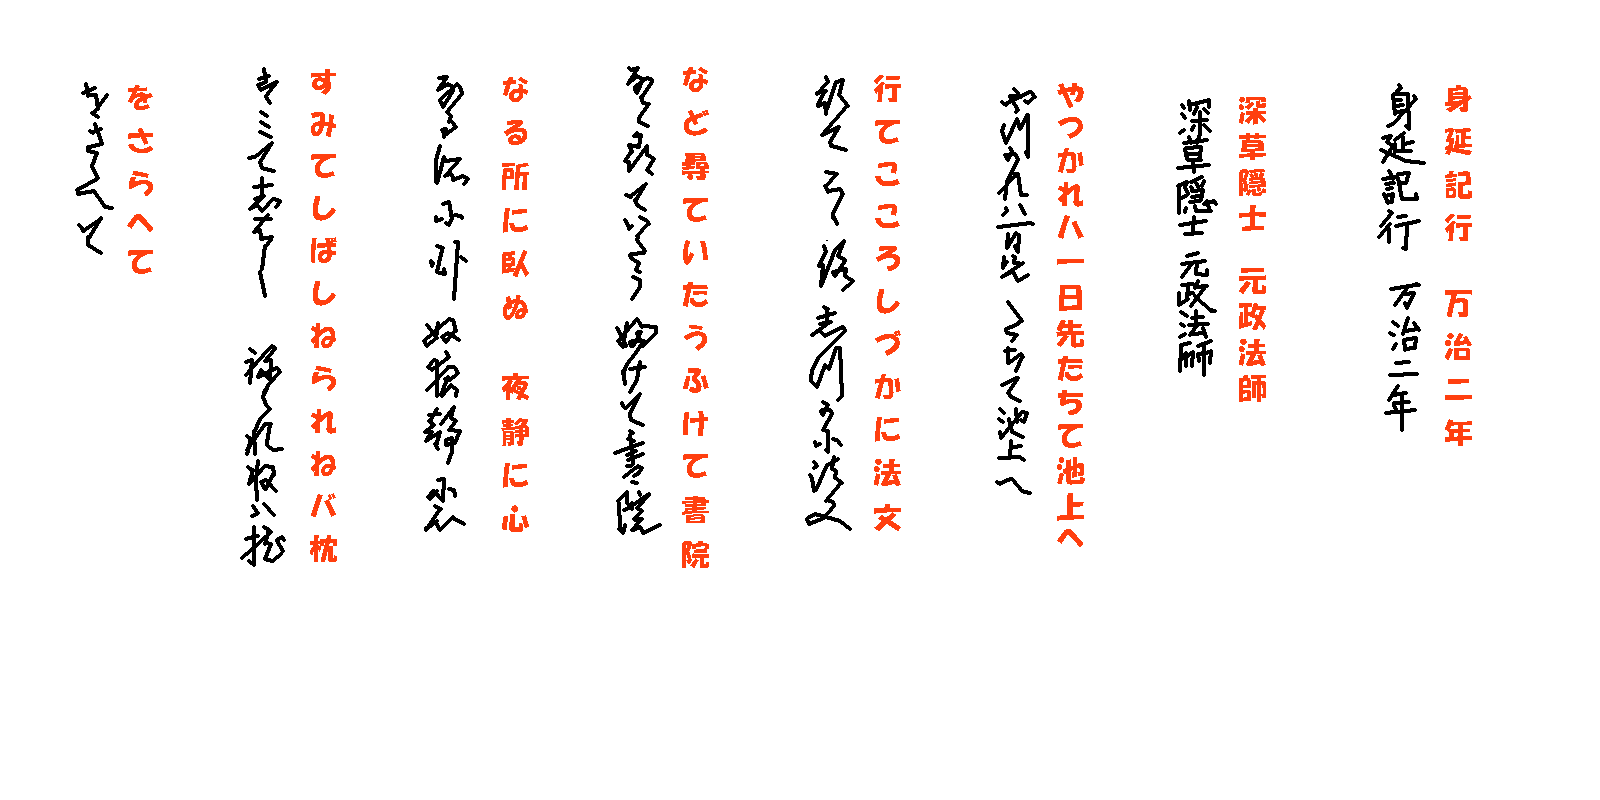 身延記行 万治二年
身延記行 万治二年
深草隠士 元政法師
深草隠士 元政法師
やつかれハ一日先たちて池上へ
や川かれハ一日先たちて池上へ
行てこころしづかに法文
行てこゝ路志川可尓法文
など尋ていたうふけて書院
なと尋ていたう婦けて書院
なる所に臥ぬ 夜静に心
なる所尓臥奴夜静尓心
すみてしばしねられねバ枕
すミて志者し 祢られねハ枕
をさらへて
をさらへて